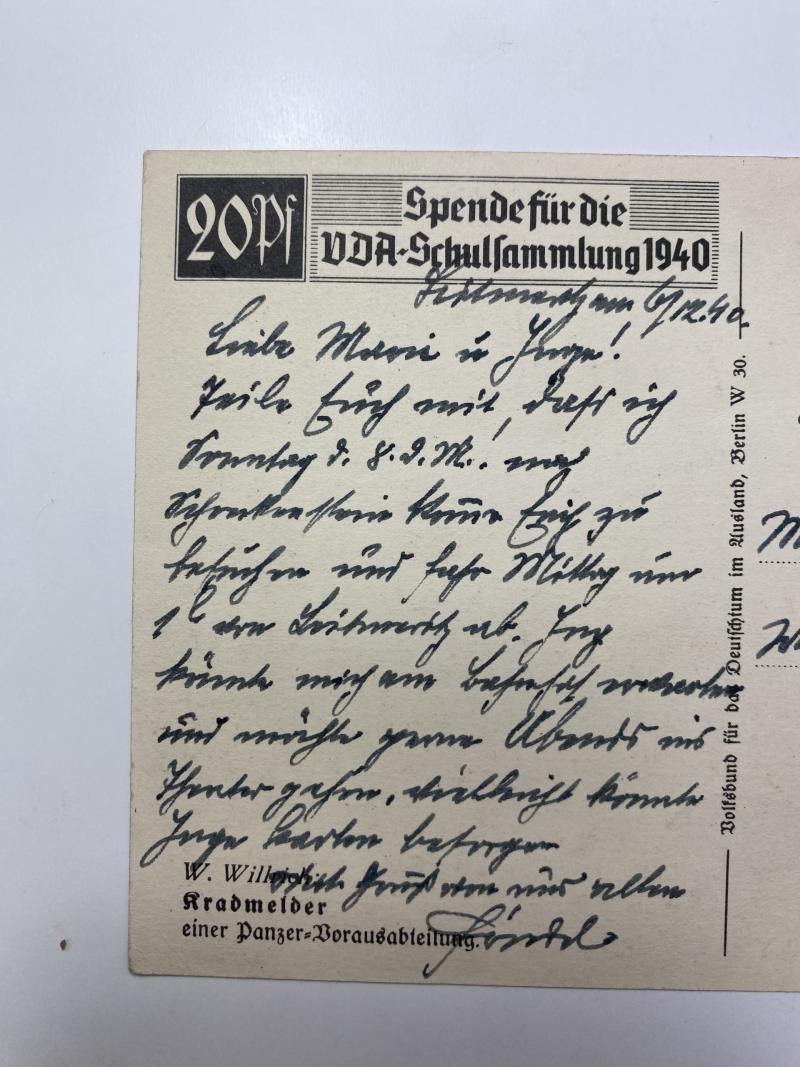 20 Pf
Spende für die
VDA-Schulsammlung 1940
Leitmeritz am 6/12.40.
Liebe Marie u Inge!
Teile Euch mit, dass ich
Sonntag d. 8. d. M. nach
Schreckenstein komme Euch zu
besuchen und fahr Mittag um
1 von Leitmeritz ab. Inge
könnte mich am Bahnhof erwarten
und möchte gerne Abends ins
Theater gehen, vielleicht könnte
Inge Karten besorgen
Mit Gruß von uns allen
W. Willrich:
Kradmelder
einer Panzer-Vorausabteilung.
Volksbund für das Deutschtum im Ausland, Berlin W 30.